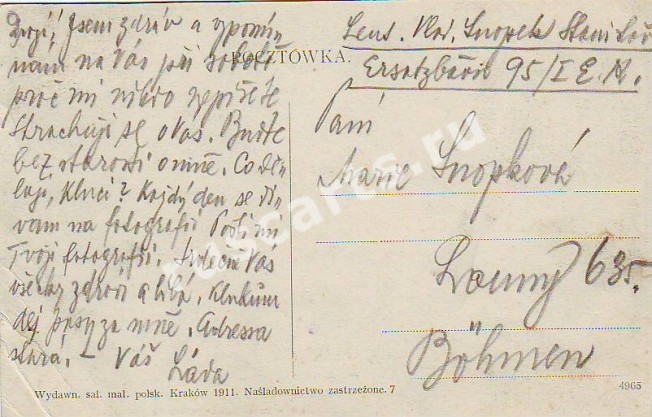 Drazí! Jsem zdráv a vzpomí
nám na Vás při sobotě
proč mi nikdo nepíšete
Strachuji se o Vás. Buďte
bez starosti o mně. Co dě
lají, Kluci? Každý den se dí
vám na fotografii Pošli mi
Tvoji fotografii. Srdečně Vás
všecky zdraví a líbá. Klukům
dej pusy za mně. Adressa
stará. – Váš Láda
POCZTÓWKA.
Vlad. Snopek
Ersatzbatt 95/I E. K.
Paní
Marie Snopková
Louny 635.
Böhmen
Wydawn. sal. mal. polsk. Kraków 1911. Naśladownictwo zastrzeżone. 7
4965
ruscards.ru